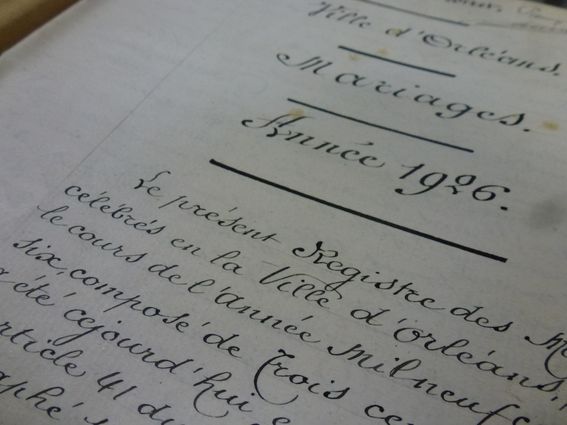 Ville d'Orléans.
Mariages.
Année 1926.
Le présent Registre des
célébrés en la Ville d'Orléans,
le cours de l'année mil neuf
six, composé de Trois
été cejourd'hui
article 41 du